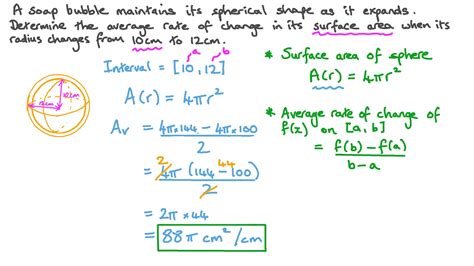 A soap bubble maintains its spherical shape as it expands.
Determine the average rate of change in its surface area when its
radius changes from 10cm to 12cm.
a b
Interval = [10, 12]
A(r) = 4πr²
A_v = 4π×144 – 4π×100
2
= 2 4π (144 – 100) 44
2
= 2π × 44
= 88π cm²/cm
12cm
10cm
* Surface area of sphere
A(r) = 4πr²
* Average rate of change of
f(x) on [a, b]
= f(b) – f(a)
b – a